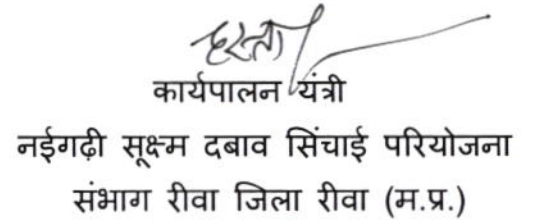 हस्ता/
कार्यपालन यंत्री
नईगढ़ी सूक्ष्म दबाव सिंचाई परियोजना
संभाग रीवा जिला रीवा (म.प्र.)